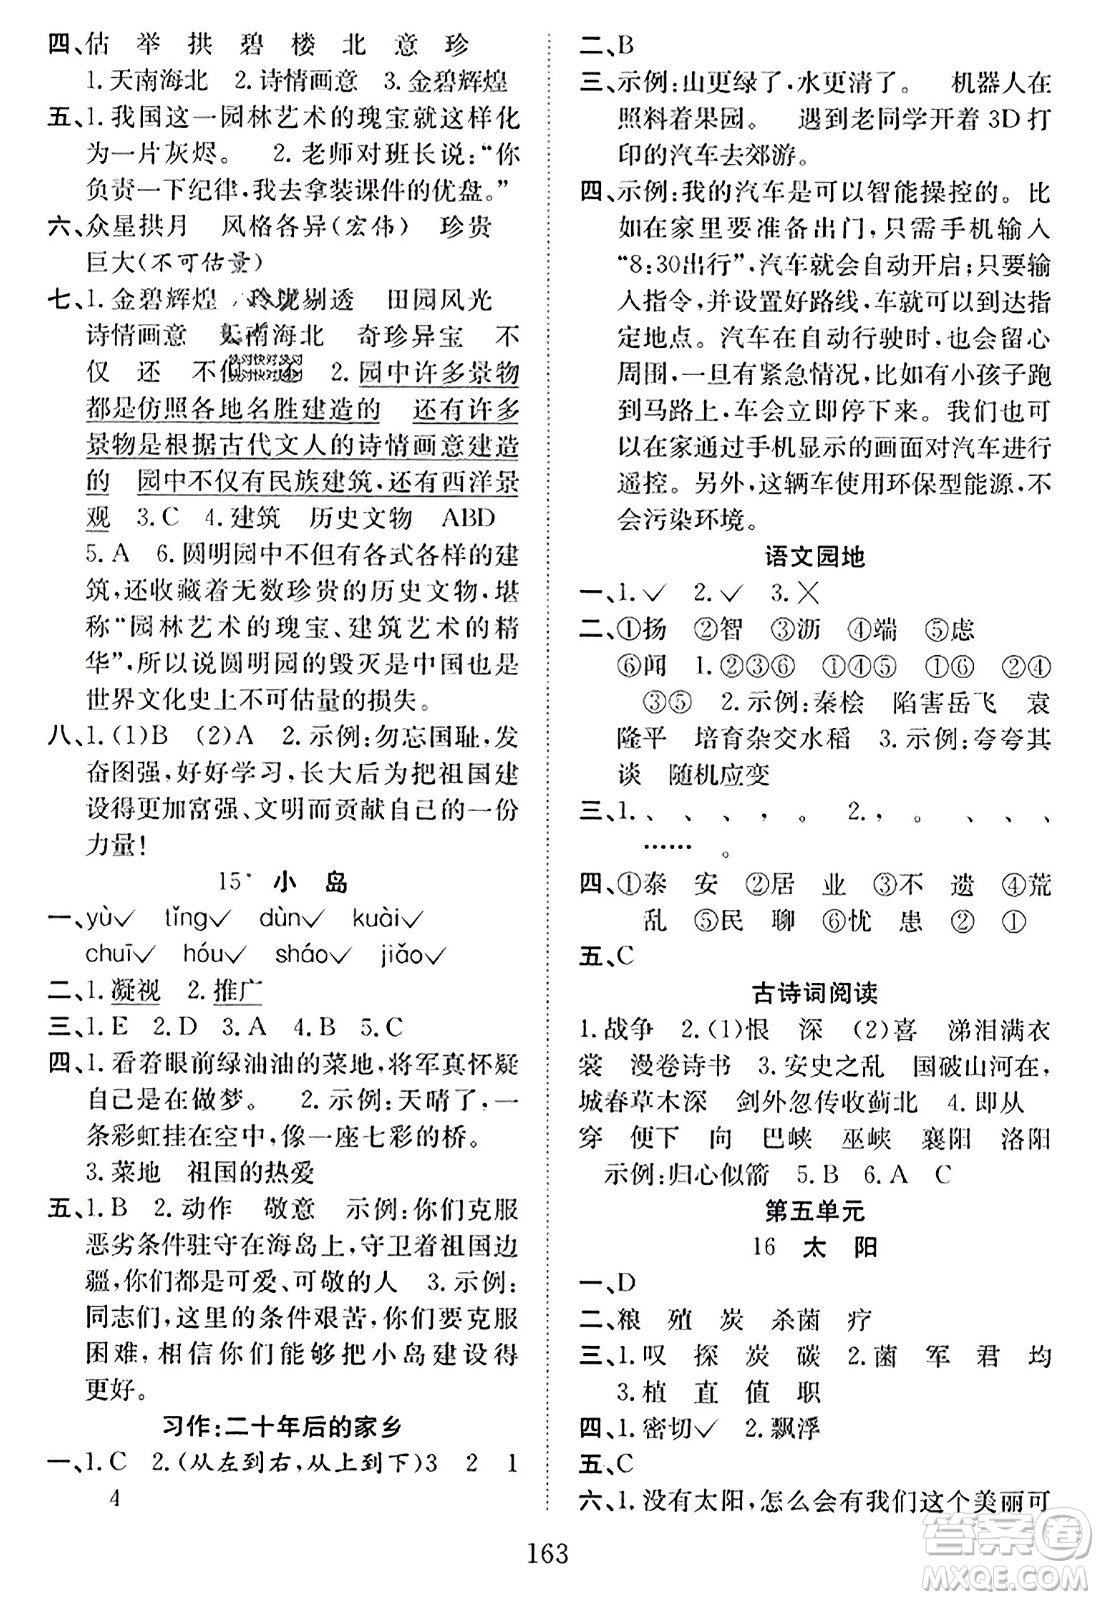 四、估 举 拱 碧 楼 北 意 珍
1.天南海北 2.诗情画意 3.金碧辉煌
五、1.我国这一园林艺术的瑰宝就这样化
为一片灰烬。 2.老师对班长说:“你
负责一下纪律,我去拿装课件的优盘。”
六、众星拱月 风格各异(宏伟) 珍贵
巨大(不可估量)
七、1.金碧辉煌 玲珑剔透 田园风光
诗情画意 天南海北 奇珍异宝 不
仅 还 不但 还 2.园中许多景物
都是仿照各地名胜建造的 还有许多
景物是根据古代文人的诗情画意建造
的 园中不仅有民族建筑,还有西洋景
观 3.C 4.建筑 历史文物 ABD
5.A 6.圆明园中不但有各式各样的建
筑,还收藏着无数珍贵的历史文物,堪
称“园林艺术的瑰宝、建筑艺术的精
华”,所以说圆明园的毁灭是中国也是
世界文化史上不可估量的损失。
八、1.(1)B (2)A 2.示例:勿忘国耻,发
奋图强,好好学习,长大后为把祖国建
设得更加富强、文明而贡献自己的一份
力量!
15* 小 岛
一、yù✓ tǐng✓ dùn✓ kuài✓
chuī✓ hóu✓ sháo✓ jiǎo✓
二、1.凝视 2.推广
三、1.E 2.D 3.A 4.B 5.C
四、1.看着眼前绿油油的菜地,将军真怀疑
是在做梦。 2.示例:天晴了,一
条彩虹挂在空中,像一座七彩的桥。
3.菜地 祖国的热爱
五、1.B 2.动作 敬意 示例:你们克服
恶劣条件驻守在海岛上,守卫着祖国边
疆,你们都是可爱、可敬的人 3.示例:
同志们,这里的条件艰苦,你们要克服
困难,相信你们能够把小岛建设得
更好。
习作:二十年后的家乡
一、1.C 2.(从左到右,从上到下)3 2 1
4
二、B
三、示例:山更绿了,水更清了。 机器人在
照料着果园。 遇到老同学开着 3D 打
印的汽车去郊游。
四、示例:我的汽车是可以智能操控的。比
如在家里要准备出门,只需手机输入
“8:30出行”,汽车就会自动开启;只要输
入指令,并设置好路线,车就可以到达指
定地点。汽车在自动行驶时,也会留心
周围,一旦有紧急情况,比如有小孩子跑
到马路上,车会立即停下来。我们也可以
在家通过手机显示的画面对汽车进行
遥控。另外,这辆车使用环保型能源,不
会污染环境。
语文园地
一、1.✓ 2.✓ 3.╳
二、①扬 ②智 ③沥 ④端 ⑤虑
⑥闻 1.②③⑥ ①④⑤ ①⑥ ②④
③⑤ 2.示例:秦桧 陷害岳飞 袁
隆平 培育杂交水稻 3.示例:夸夸其
谈 随机应变
三、1.、 、 、 , 。 2., 。 、 、 、
…… 。
四、①泰 安 ②居 业 ③不 遗 ④荒
乱 ⑤民 聊 ⑥忧 患 ② ①
五、C
古诗词阅读
1.战争 2.(1)恨 深 (2)喜 涕泪满衣
裳 漫卷诗书 3.安史之乱 国破山河在,
城春草木深 剑外忽传收蓟北 4.即从
穿 便下 向 巴峡 巫峡 襄阳 洛阳
示例:归心似箭 5.B 6.A C
第五单元
16 太 阳
一、D
二、粮 殖 炭 杀菌 疗
三、1.叹 探 炭 碳 2.菌 军 君 均
3.植 直 值 职
四、1.密切✓ 2.飘浮
五、C
六、1.没有太阳,怎么会有我们这个美丽可
163
答案圈
MXQE.COM